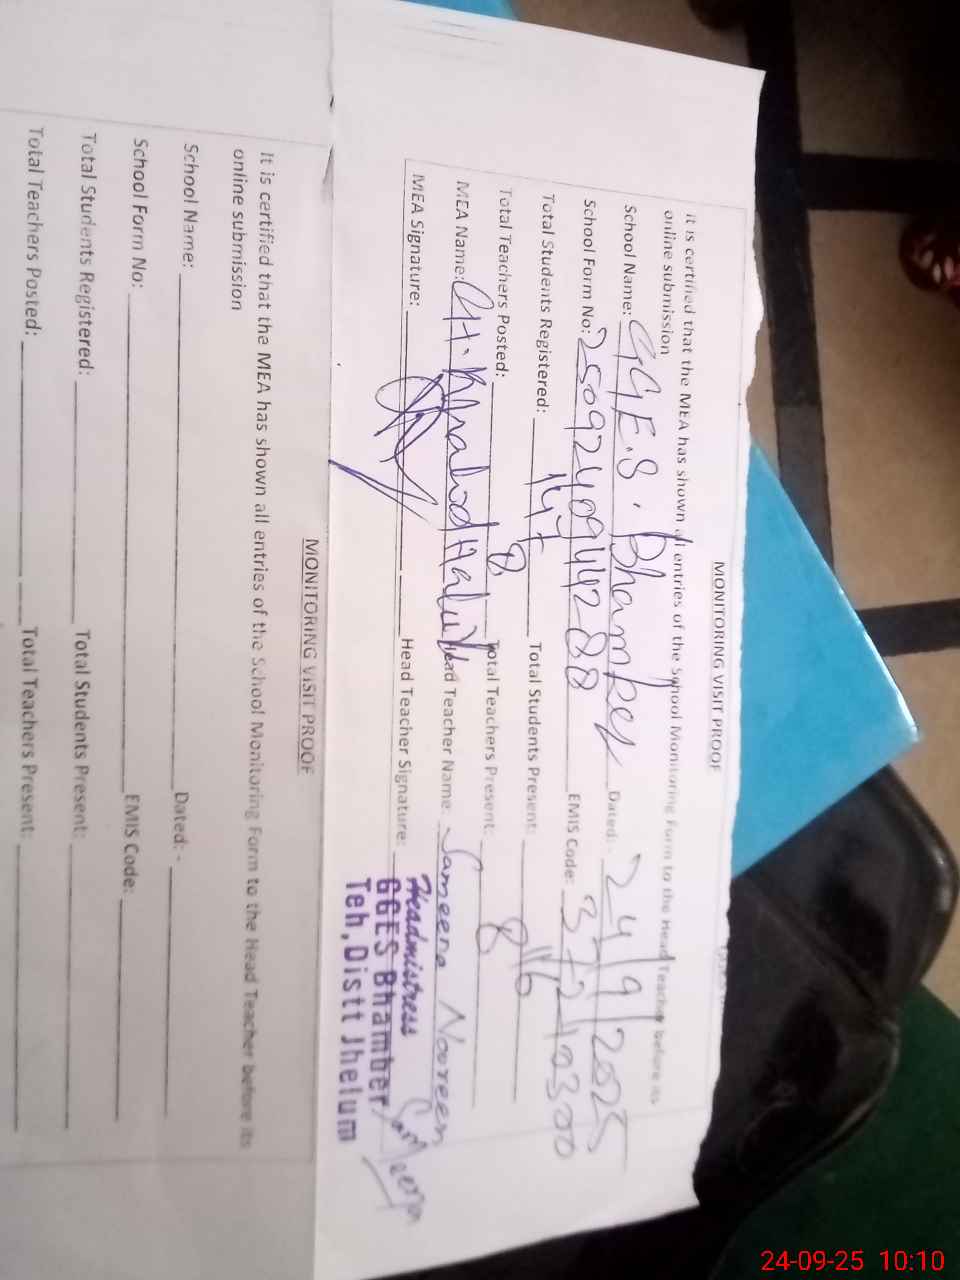 MONITORING VISIT PROOF
It is certified that the MEA has shown all entries of the School Monitoring Form to the Head Teacher before its
online submission
School Name: GGE.S. Bhamber Dated:- 24/9/2025
School Form No: 25092409444288 EMIS Code: 37240300
Total Students Registered: 147 Total Students Present: 116
Total Teachers Posted: 8 Total Teachers Present: 8
MEA Name: Gh. Head Teacher Name: Sameena Noureen
MEA Signature: Head Teacher Signature:
Headmistress
GGES Bhamber
Teh, Distt Jhelum
MONITORING VISIT PROOF
It is certified that the MEA has shown all entries of the School Monitoring Form to the Head Teacher before its
online submission
School Name: Dated: -
School Form No: EMIS Code:
Total Students Registered: Total Students Present:
Total Teachers Posted: Total Teachers Present:
24-09-25 10:10